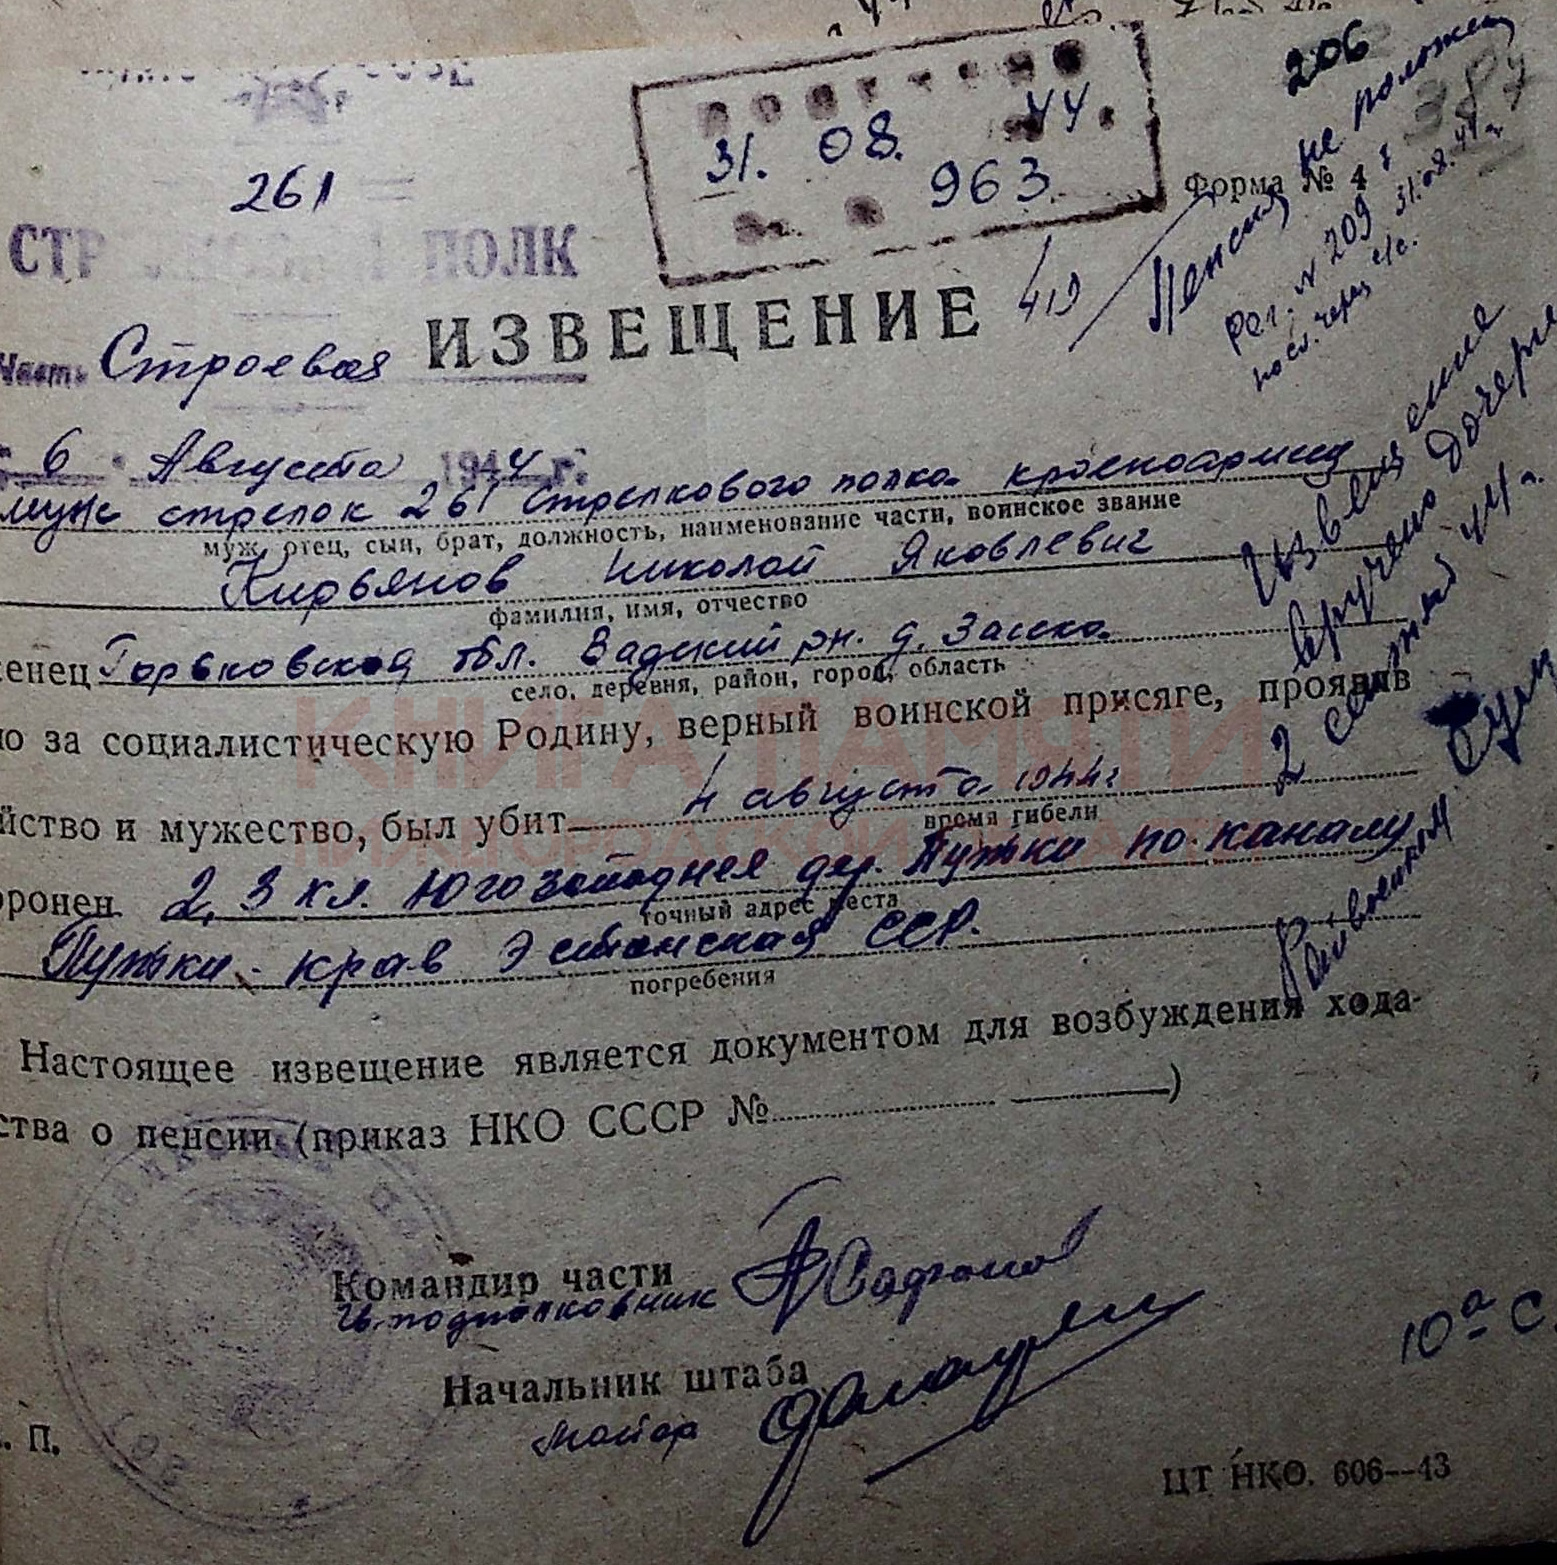 206
387
31. 08. 44.
963
Форма № 4
261
СТР ПОЛК
Пенсия не положен
Рег. № 209 31.08.44 г.
посл. через с/с.
Часть Строевая
ИЗВЕЩЕНИЕ
419
6 Августа 1944 г.
муж стрелок 261 стрелкового полка красноармеец
муж, отец, сын, брат, должность, наименование части, воинское звание
Кирьянов Николай Яковлевич
фамилия, имя, отчество
енец Горьковская обл. Вадский рн. д.
село, деревня, район, город, область
ю за социалистическую Родину, верный воинской присяге, проявив
йство и мужество, был убит 4 августа 1944 г.
время гибели
оронен 2,3 кл. Югозападнея дер. Путки по каналу
точный адрес места
Путки - крав Эстонская ССР.
погребения
Извещение
вручено дочери
2 сентября 44 г.
Настоящее извещение является документом для возбуждения хода-
ства о пенсии (приказ НКО СССР № )
Командир части
гв. подполковник Сафонов
Начальник штаба
майор
. П.
10а с.
ЦТ НКО. 606—43
КНИГА ПАМЯТИ
НИЖЕГОРОДСКОЙ